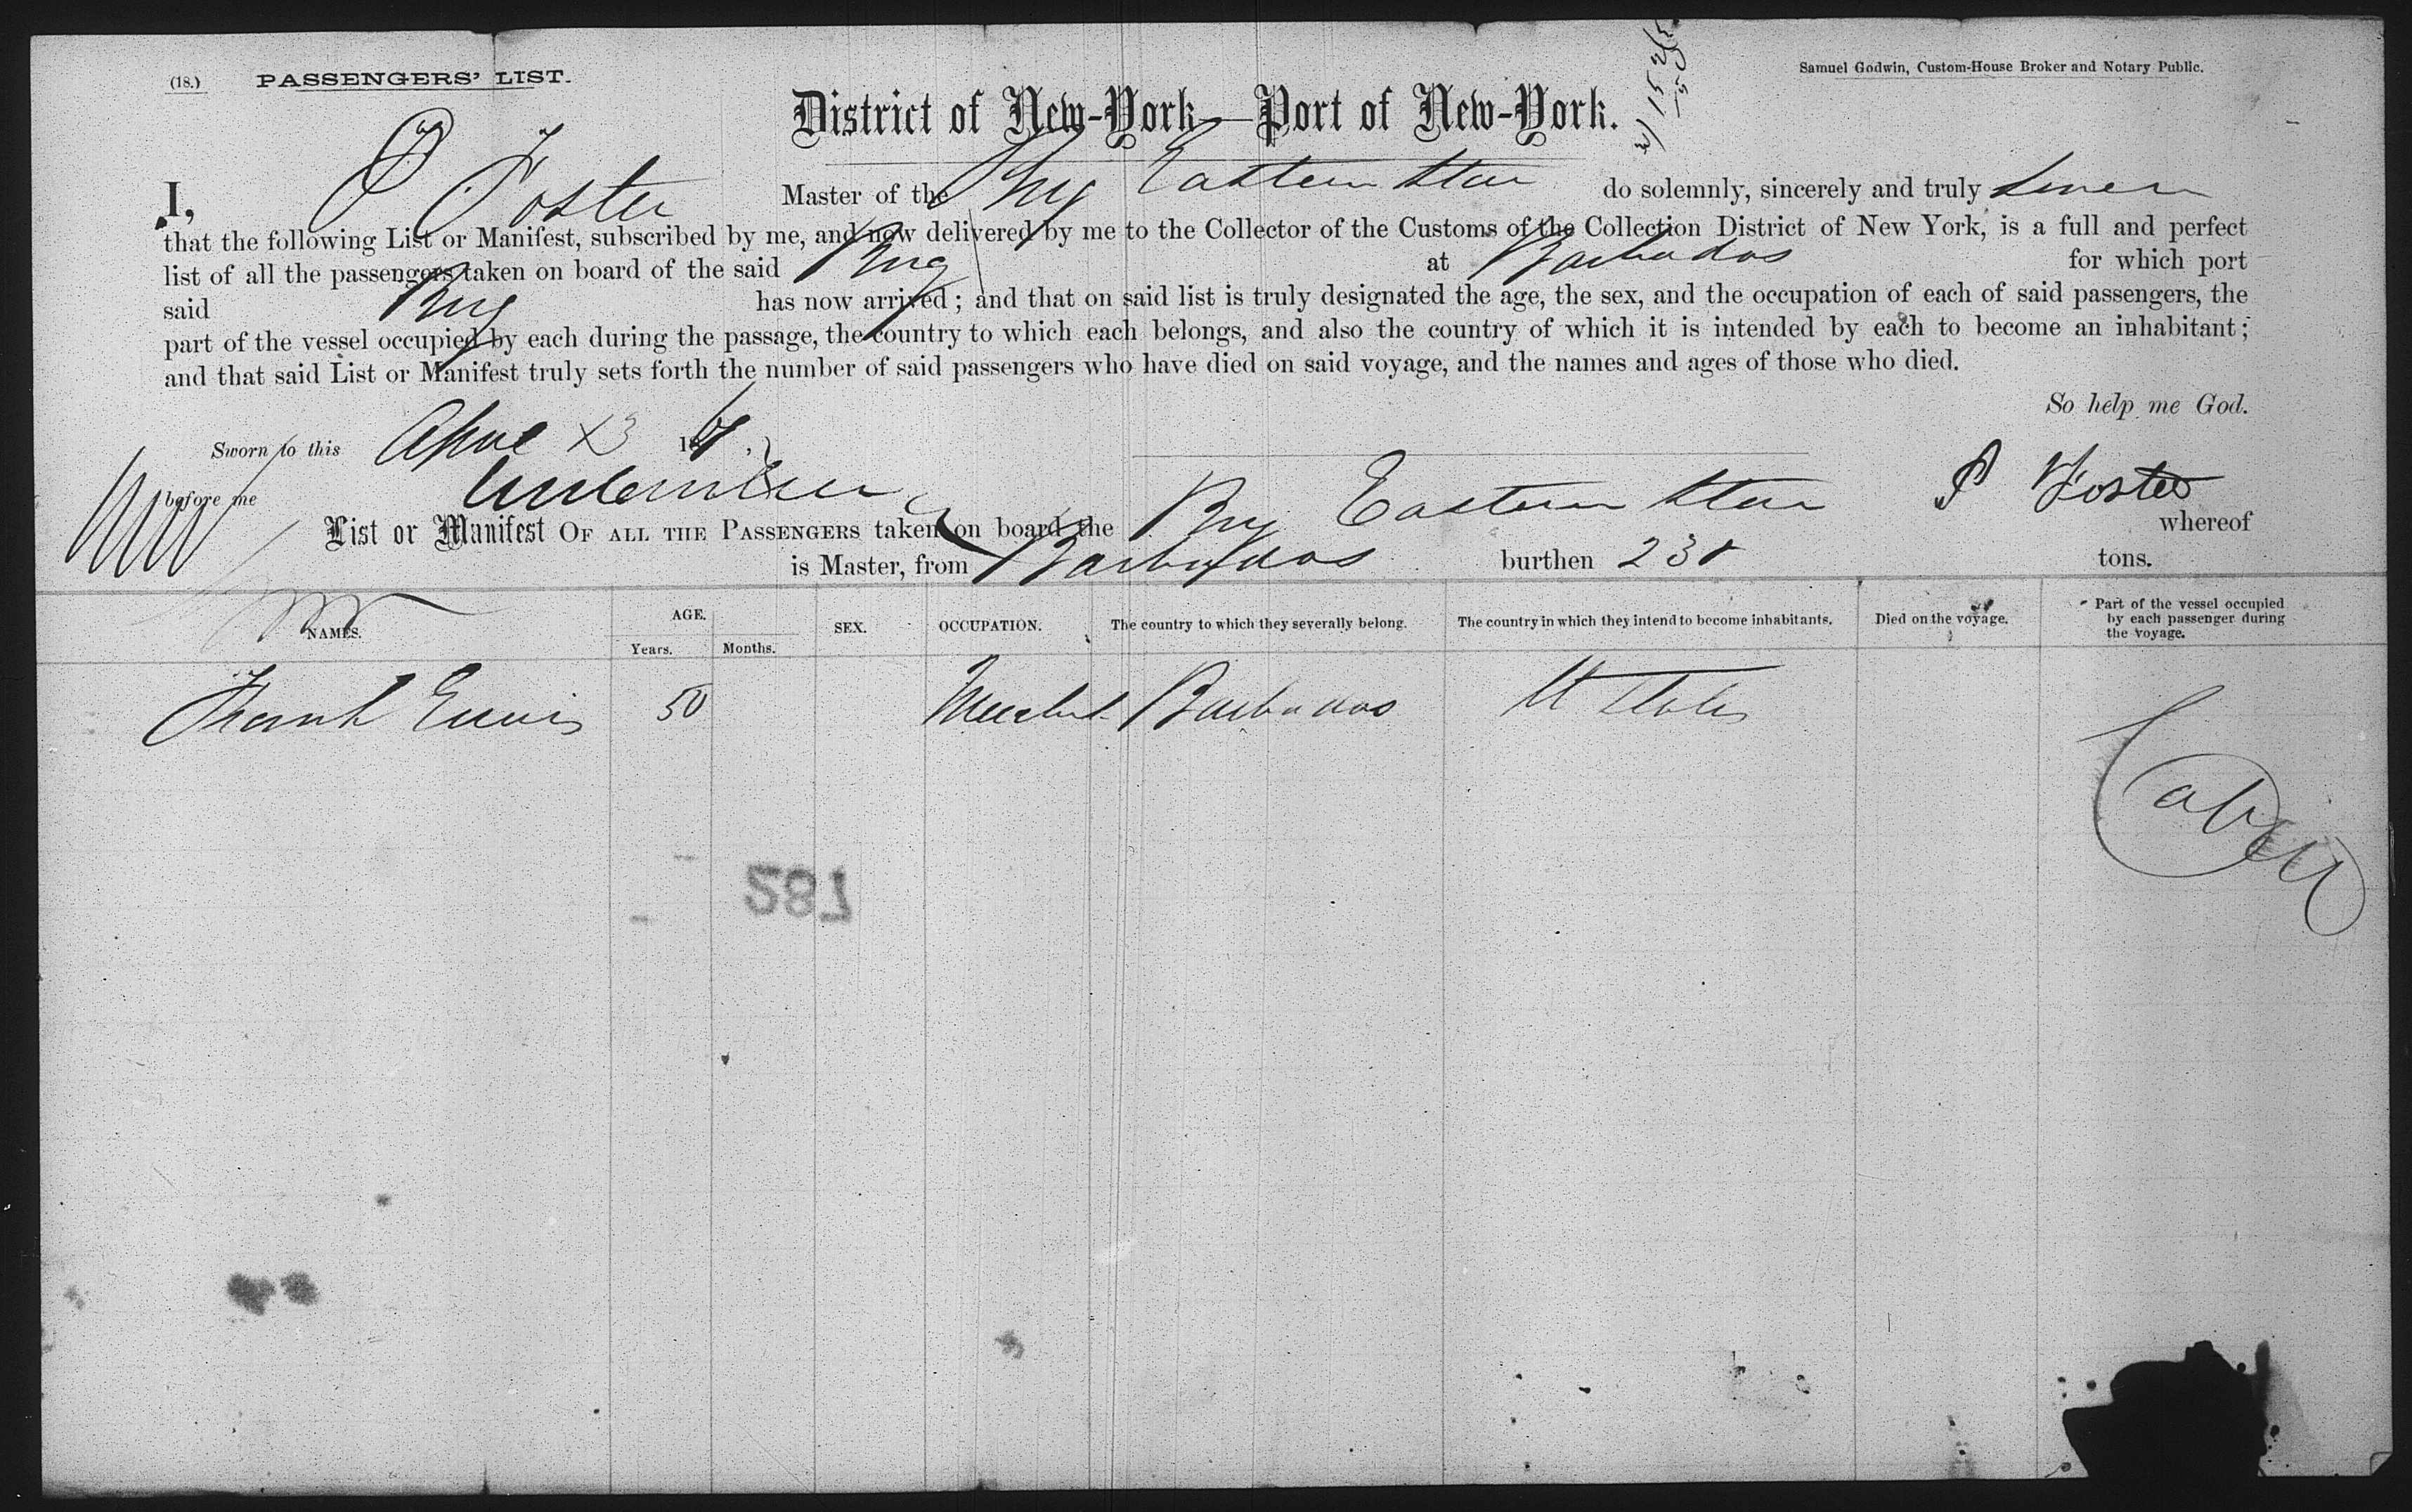 (18.) PASSENGERS' LIST.
Samuel Godwin, Custom-House Broker and Notary Public.
District of New-York—Port of New-York.
I, P Foster Master of the Brig Eastern Star do solemnly, sincerely and truly swear
that the following List or Manifest, subscribed by me, and now delivered by me to the Collector of the Customs of the Collection District of New York, is a full and perfect
list of all the passengers taken on board of the said Brig at Barbados for which port
said Brig has now arrived; and that on said list is truly designated the age, the sex, and the occupation of each of said passengers, the
part of the vessel occupied by each during the passage, the country to which each belongs, and also the country of which it is intended by each to become an inhabitant;
and that said List or Manifest truly sets forth the number of said passengers who have died on said voyage, and the names and ages of those who died.
So help me God.
Sworn to this April 23
before me
List or Manifest OF ALL THE PASSENGERS taken on board the Brig Eastern Star P Foster whereof
is Master, from Barbados burthen 238 tons.
NAMES. AGE. Years. Months. SEX. OCCUPATION. The country to which they severally belong. The country in which they intend to become inhabitants. Died on the voyage. Part of the vessel occupied by each passenger during the voyage.
Frank 50 Barbados U States
Cabin
287